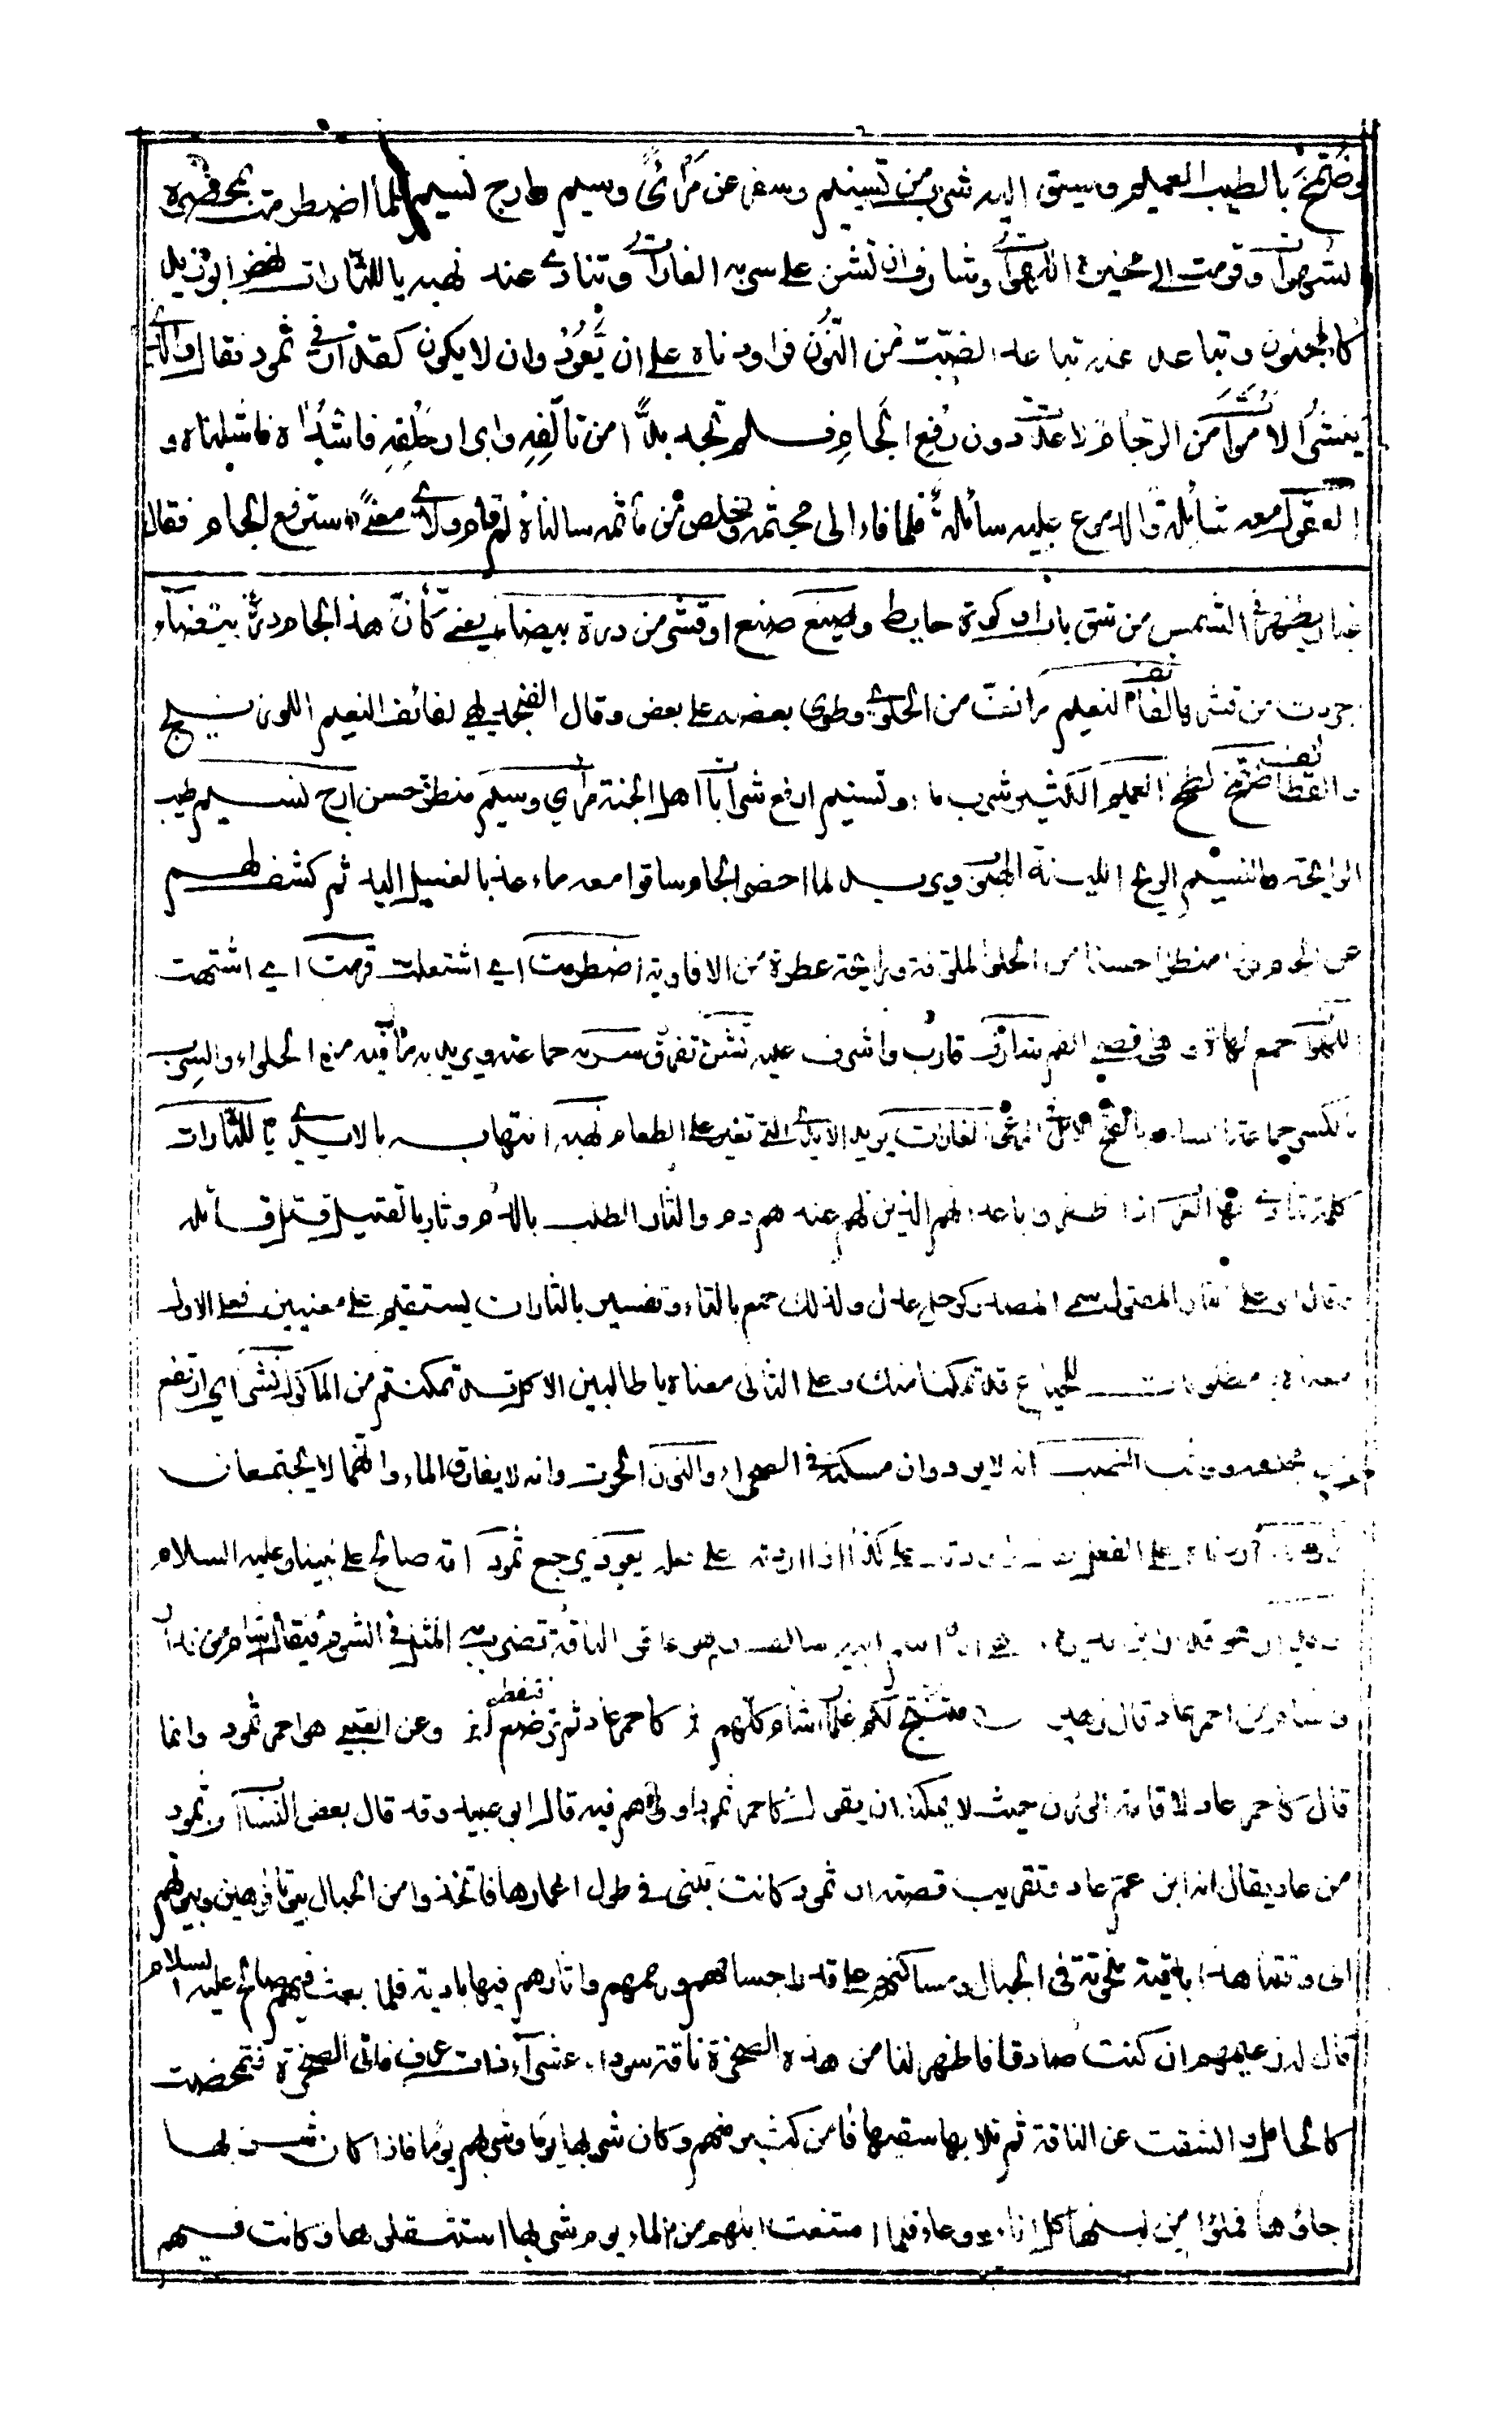 وضُمّخ بالطيب العميم وسيق اليه شرب من تسنيم وسفر عن مَرْأًى وسيم وارج نسيم فلما اضطرمت بمحضره
الشهوات وقرمت الى مخبره اللهوات وشارف ان تشن على سربه الغارات وتنادى عند نهبه يا للثارات نشز ابو زيد
كالمجنون وتباعد عنه تباعد الضبّ من النّون فراودناه على ان يعُود وان لا يكون كقدار في ثمود فقال والذي
ينشر الاموات من الرجام لا عدت دون رفع الجام فلم نجد بدًّا من تألّفه وابرار حلفه فاشلناه و
العقول معه شائلة والدموع عليه سائلة فلما فاء الى مجثمه وخلص من مأثمه سألناه لم قام ولاي معنى استرفع الجام فقال
غبار يظهر في الشمس من شق باب او كوة حايط وصيغ صنع او قشر من درة بيضاء يعني كأنّ هذا الجام درة بيضاء
جردت من قشر لفائف النعيم ما لفّ من الحلوى وطوي بعضه على بعض وقال الفنجديهي لفائف النعيم اللوزينج
والقطائف ضمّخ لطخ العميم الكثير شرب ماء وتسنيم ارفع شراب اهل الجنة مرأى وسيم منظر حسن ارج نسيم طيب
الرايحة والنسيم الريح اللينة الهبوب ويريد لما احضر الجام ساقوا معه ماء عذبا لغسل اليد ثم كشف لهم
عن الجام فرأوا منظرا حسنا من الحلوا الملوّنة ورايحة عطرة من الافاوية اضطرمت اي اشتعلت قرمت اي اشتهت
اللهوات جمع لهاة وهي اقصى الفم شارف قارب واشرف عليه تشن تفرق سربه جماعته ويريد به ما فيه من الحلواء والسِرب
بالكسر جماعة النساء وبالفتح الابل الغارات يريد الايدي التي تغير على الطعام نهبه انتهابه بالايدي يا للثارات
كلمة تنادي بها العرب اذا ظفروا باعدائهم الذين لهم عندهم دم والثار الطلب بالدم وثار بالقتيل قتل قاتله
ويقال ايضا للمقتول سمي بالمصدر كرجل عدل ولذلك جمع بالتاء وتفسير بالثارات يستقيم على معنيين فعلى الاول
معناه يا مطلوبات للجياع قد تمكنا منك وعلى الثاني معناه يا طالبين الاكل قد تمكنتم من الماكول نشز اي ارتفع
عن مجلسه ووثب الضب انه لا يرد وان مسكنه في الصحراء والنون الحوت وانه لا يفارق الماء وانهما لا يجتمعان
على الفعل على كذا اذا اردته على فعله يعود يرجع ثمود امة صالح على نبينا وعليه السلام
اسم ابيه سالف وهو عاقر الناقة تضرب به المثل في الشوم فيقال اشام من قدار
واشام من احمر عاد قال زهير فتنتج لكم غلمان اشام كلهم كاحمر عاد ثم ترضع فتفطم وعن القتيبي هو احمر ثمود وانما
قال كاحمر عاد لاقامة الوزن حيث لا يمكنه ان يقول كاحمر ثمود او وهم فيه قال ابو عبيد وقد قال بعض النساب ان ثمود
من عاد يقال انه ابن عمّ عاد وتقريب قصته ان ثمود كانت تبنى في طول اعمارها فاتخذوا من الجبال بيوتا فرهين وبيوتهم
الى وقتنا هذا باقية نحوتة في الجبال ومساكنهم على قدر اجسادهم ورممهم واثارهم فيها بادية فلما بعث فيهم صالح عليه السلام
قال له زعيمهم ان كنت صادقا فاظهر لنا من هذه الصخرة ناقة سوداء عشرآء ذات عرف فاتى الصخرة فتمخضت
كالحامل وانشقت عن الناقة ثم تلا بها سقبها فآمن كثير منهم وكان شربها يوما وشربهم يوما فاذا كان شربها
جاؤها فملؤا من لبنها كل اناء ووعاء فلما امتنعت ابلهم من الماء يوم شربها استثقلوها وكانت فيهم